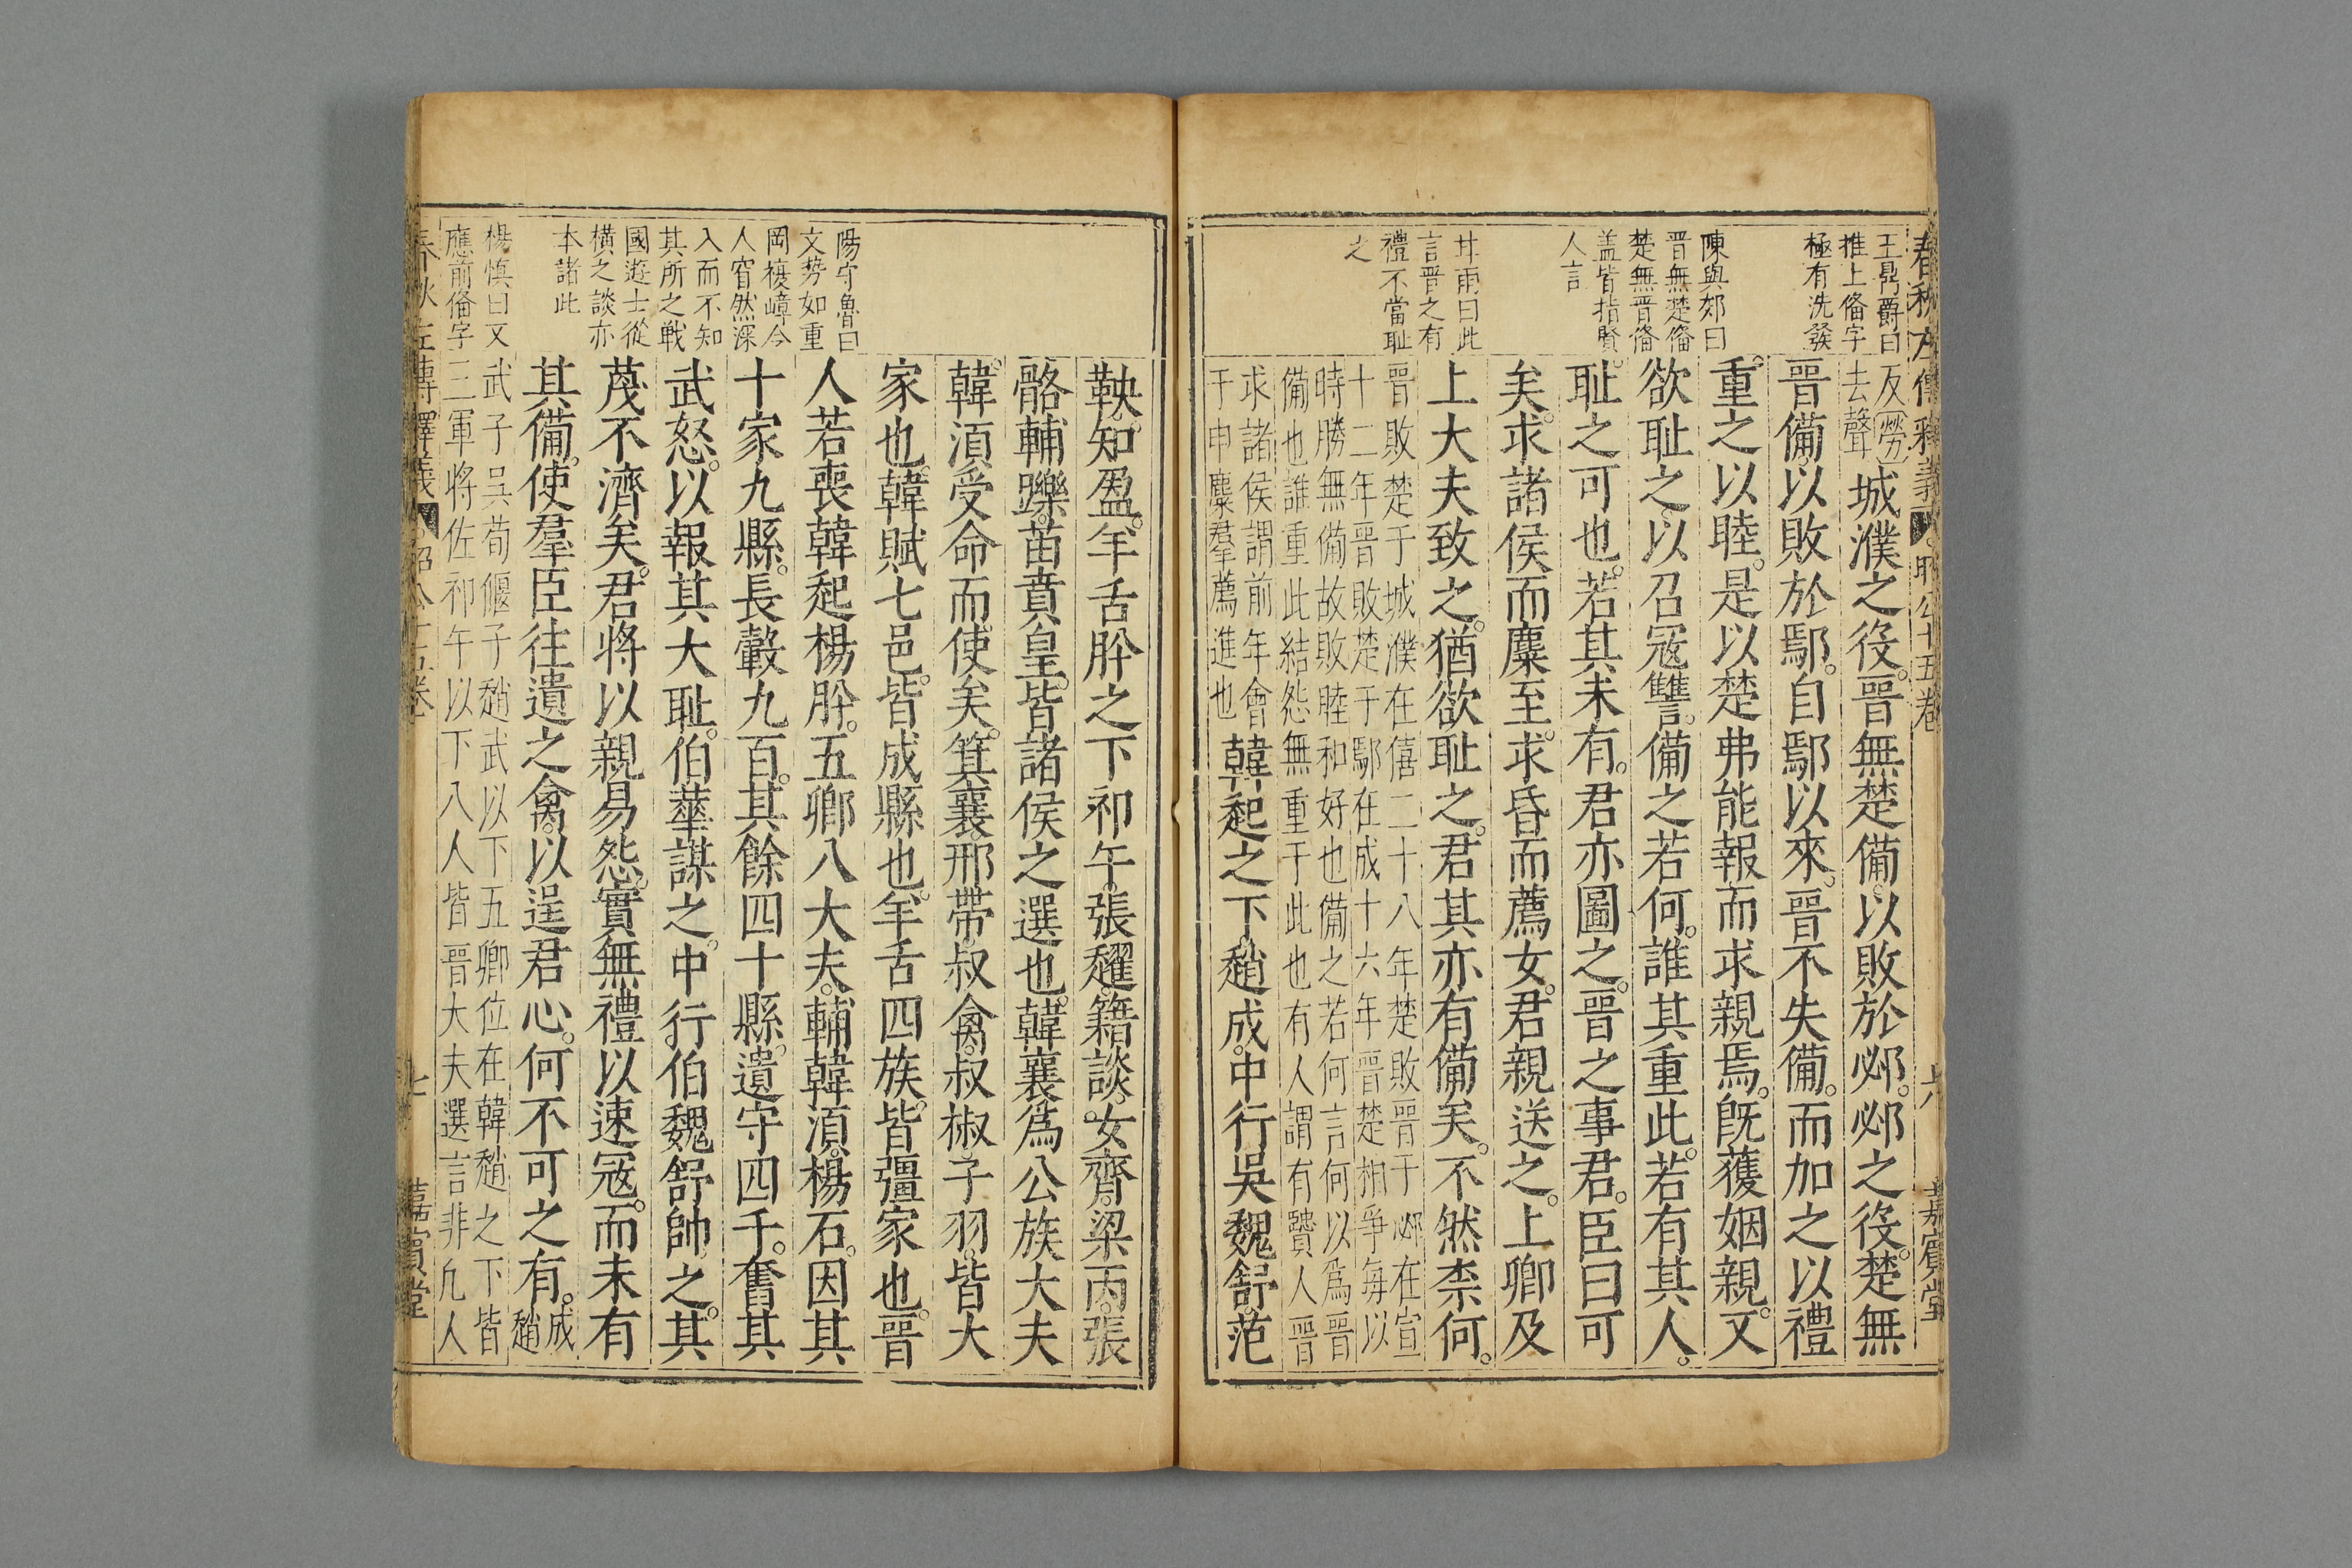 春秋左傳釋義 昭公十五卷 六 嘉賓堂
王鼎爵曰
推上備字
極有洗發
陳與郊曰
晉無楚備
楚無晉備
盖皆指賢
人言
井雨曰此
言晉之有
禮不當耻
之
反勞
去聲
城濮之役。晉無楚備。以敗於邲。邲之役。楚無
晉備。以敗於鄢。自鄢以來。晉不失備。而加之以禮
重之以睦。是以楚弗能報而求親焉。旣獲姻親。又
欲耻之。以召冦讐。備之若何。誰其重此。若有其人。
耻之可也。若其未有。君亦圖之。晉之事君。臣曰可
矣。求諸侯而麇至。求昏而薦女。君親送之。上卿及
上大夫致之。猶欲耻之。君其亦有備矣。不然柰何。
晉敗楚于城濮在僖二十八年楚敗晉于邲在宣
十二年晉敗楚于鄢在成十六年晉楚相爭每以
時勝無備故敗睦和好也備之若何言何以爲晉
備也誰重此結怨無重于此也有人謂有賢人晉
求諸侯謂前年會
于申麇羣薦進也
韓起之下。趙成。中行吳。魏舒。范
鞅。知盈。羊舌肸之下。祁午。張趯。籍談。女齊。梁丙。張
骼。輔躒。苗賁皇。皆諸侯之選也。韓襄爲公族大夫
韓湏受命而使矣。箕襄。邢帶。叔禽。叔椒。子羽。皆大
家也。韓賦七邑。皆成縣也。羊舌四族。皆彊家也。晉
人若喪韓起楊肸。五卿八大夫。輔韓湏。楊石。因其
十家九縣。長轂九百。其餘四十縣。遺守四千。奮其
武怒。以報其大耻。伯華謀之。中行伯魏舒帥之。其
茂不濟矣。君將以親易怨。實無禮以速冦。而未有
其備。使羣臣往遺之禽。以逞君心。何不可之有。
成
趙
武子吳荀偃子趙武以下五卿位在韓趙之下皆
三軍將佐祁午以下八人皆晉大夫選言非凡人
陽守魯曰
文勢如重
岡複嶂令
人窅然深
入而不知
其所之戰
國遊士從
橫之談亦
本諸此
楊慎曰又
應前備字
春秋左傳釋義 昭公十五卷 七 嘉賓堂